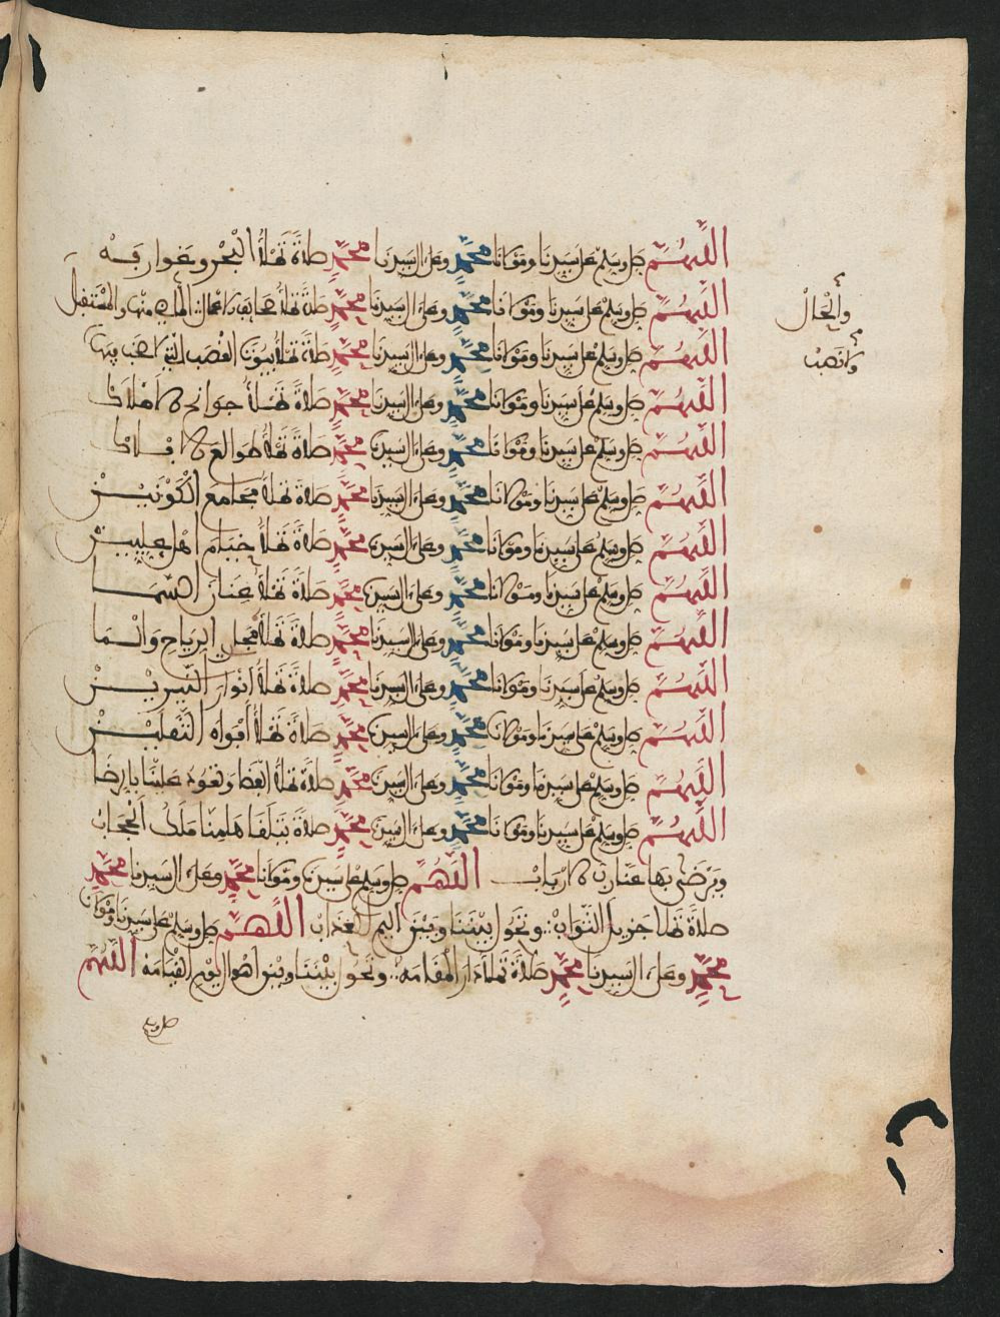 اللهم صل وسلم على سيدنا ومولانا محمد وعلى ءال سيدنا محمد صلاة تملأ البحر وغوارفه
اللهم صل وسلم على سيدنا ومولانا محمد وعلى ءال سيدنا محمد صلاة تملأ صحايف الأعمال الماضي منها والمستقبل
والحال
اللهم صل وسلم على سيدنا ومولانا محمد وعلى ءال سيدنا محمد صلاة تملأ بيوت القصب التي لا صخب فيها
ولا نصب
اللهم صل وسلم على سيدنا ومولانا محمد وعلى ءال سيدنا محمد صلاة تملأ جوانح الأملاك
اللهم صل وسلم على سيدنا ومولانا محمد وعلى ءال سيدنا محمد صلاة تملأ طوالع الأفلاك
اللهم صل وسلم على سيدنا ومولانا محمد وعلى ءال سيدنا محمد صلاة تملأ مجامع الكونين
اللهم صل وسلم على سيدنا ومولانا محمد وعلى ءال سيدنا محمد صلاة تملأ خيام أهل عليين
اللهم صل وسلم على سيدنا ومولانا محمد وعلى ءال سيدنا محمد صلاة تملأ عنان السما
اللهم صل وسلم على سيدنا ومولانا محمد وعلى ءال سيدنا محمد صلاة تملأ الرياح والما
اللهم صل وسلم على سيدنا ومولانا محمد وعلى ءال سيدنا محمد صلاة تملأ أنوار النيرين
اللهم صل وسلم على سيدنا ومولانا محمد وعلى ءال سيدنا محمد صلاة تملأ أفواه الثقلين
اللهم صل وسلم على سيدنا ومولانا محمد وعلى ءال سيدنا محمد صلاة تملأ الفضا وتعود علينا بالرضا
اللهم صل وسلم على سيدنا ومولانا محمد وعلى ءال سيدنا محمد صلاة يتلقاها منا ملك الحجاب
ويرضى بها عنا رب الأرباب اللهم صل وسلم على سيدنا ومولانا محمد وعلى ءال سيدنا محمد
صلاة تملأ جزيل الثواب وتحول بيننا وبين أليم العذاب اللهم صل وسلم على سيدنا ومولانا
محمد وعلى ءال سيدنا محمد صلاة تملأ دار المقامه وتحول بيننا وبين أهوال يوم القيامة اللهم
صل وسلم